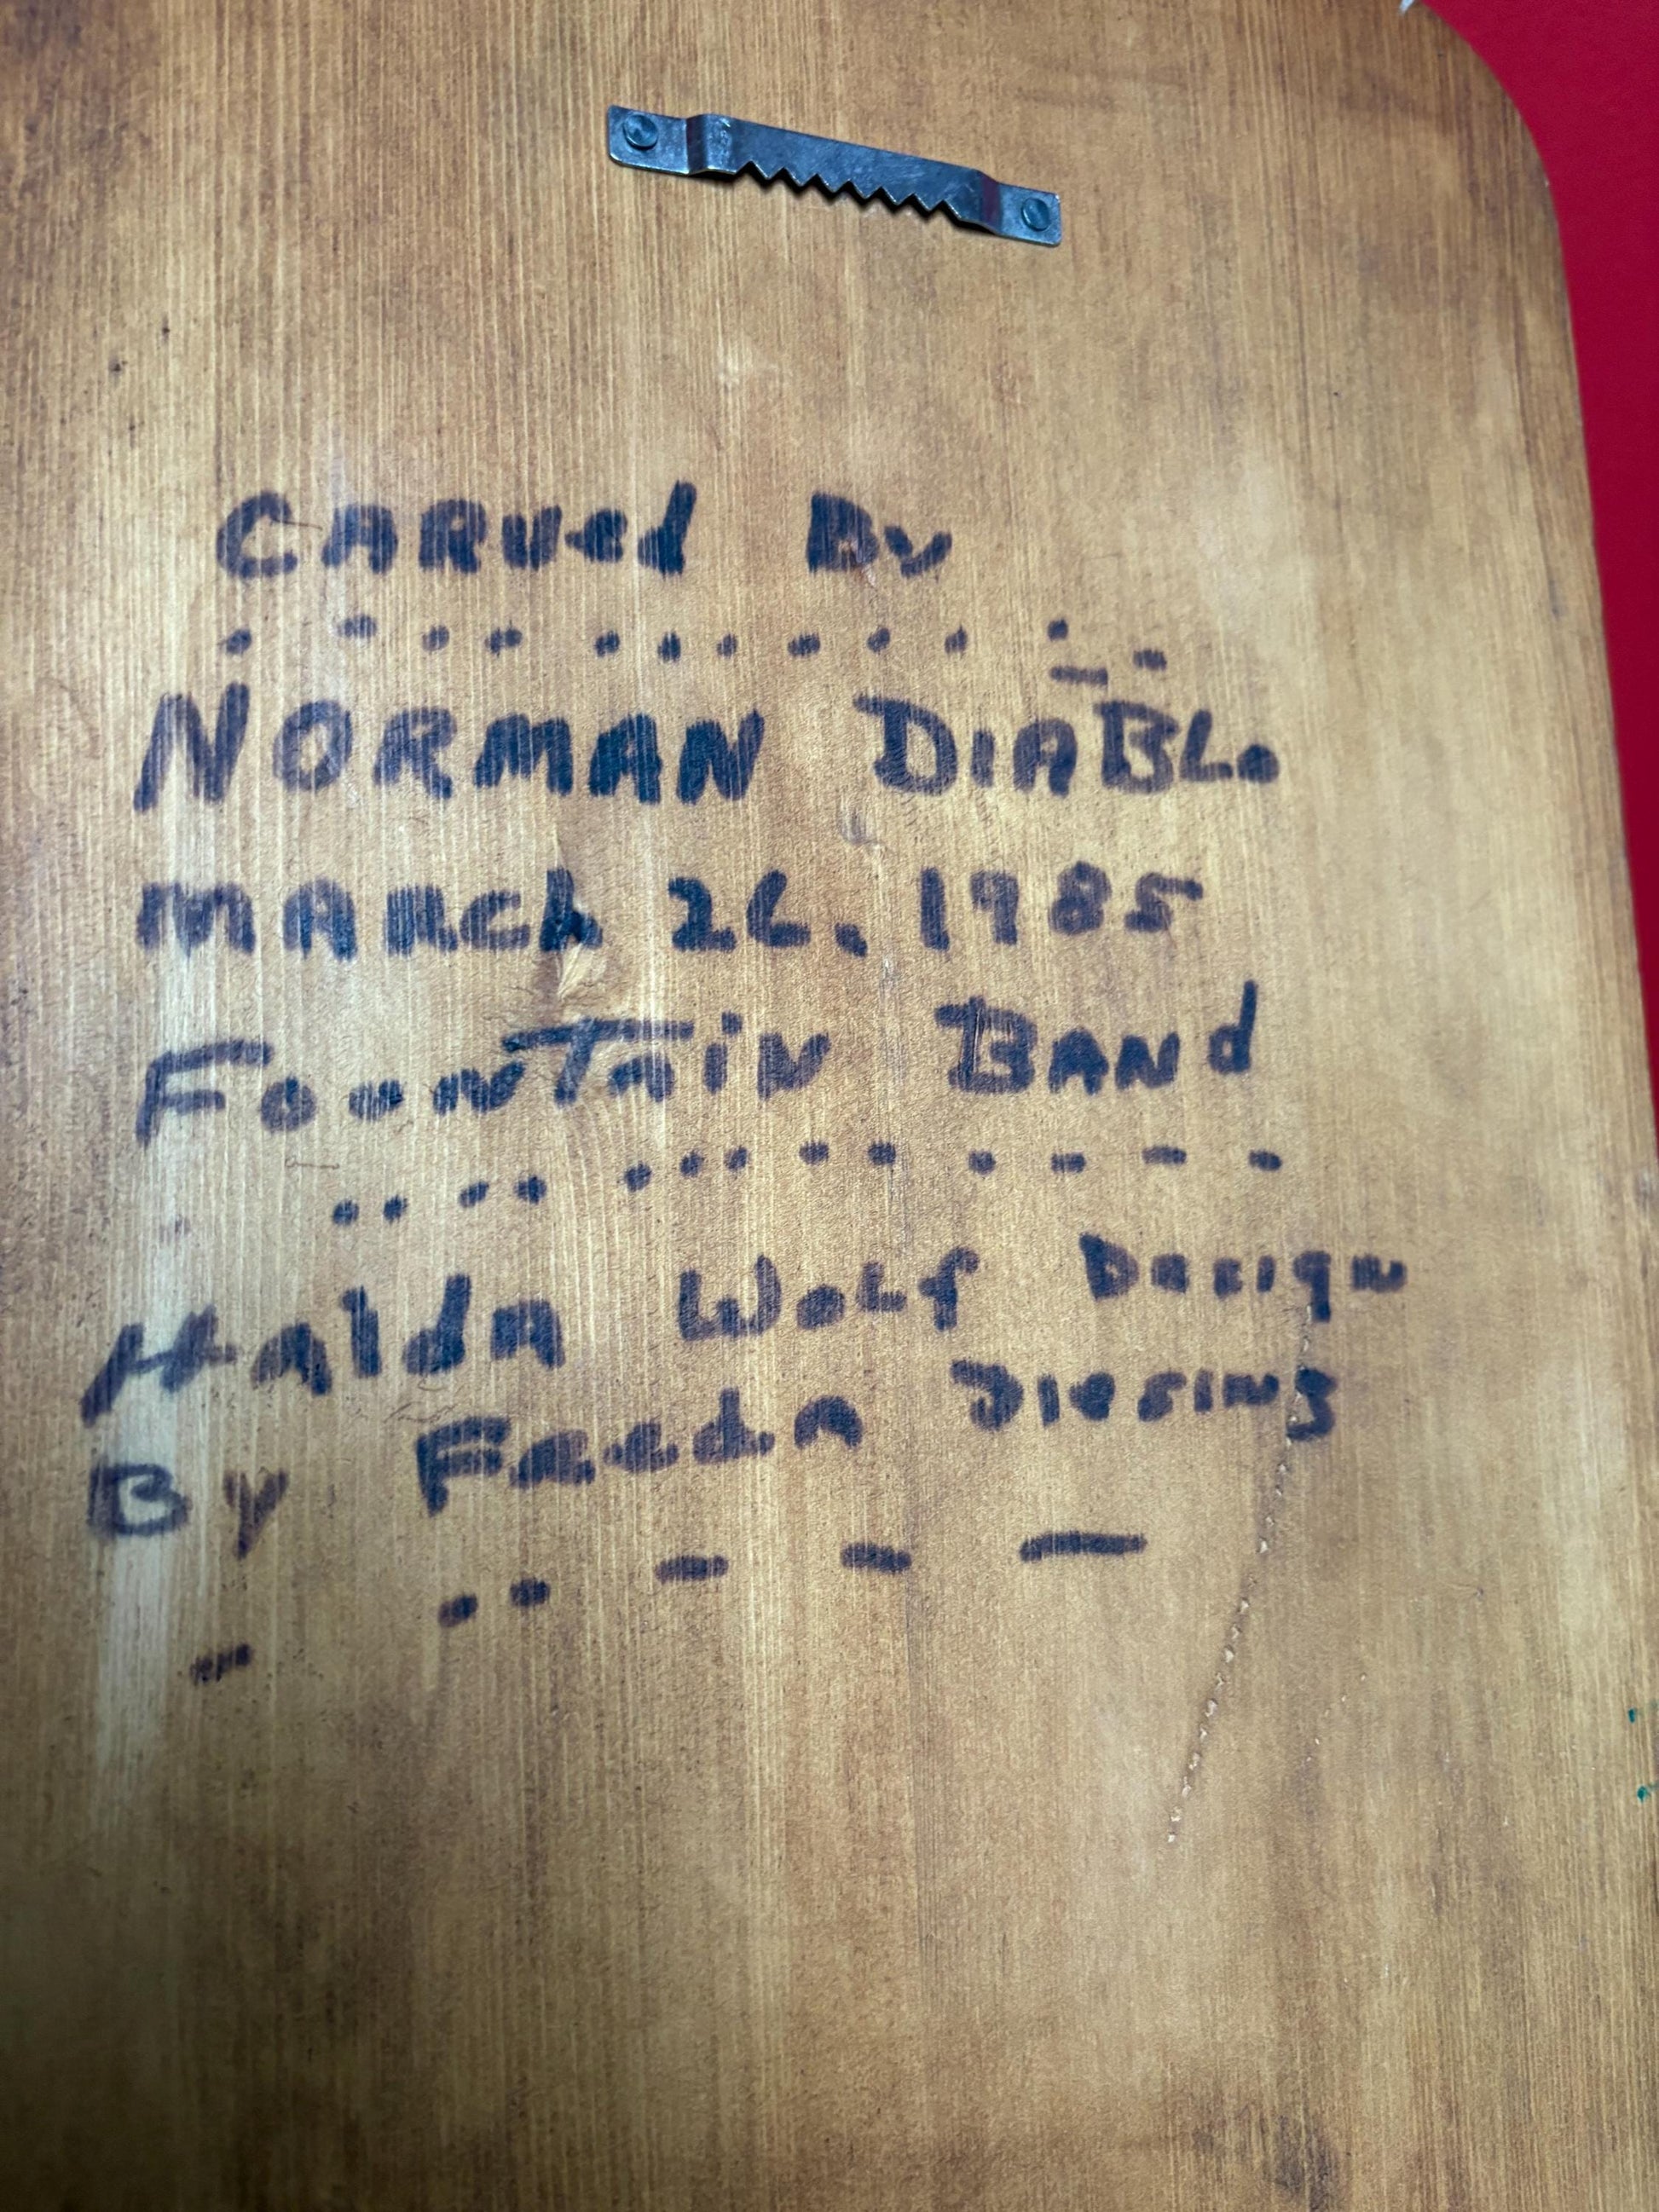 CARVed By
NORMAN DiABLo
MARch 26. 1985
FounTAiN BANd
HAldA WoLf Design
By FReedA Diesing